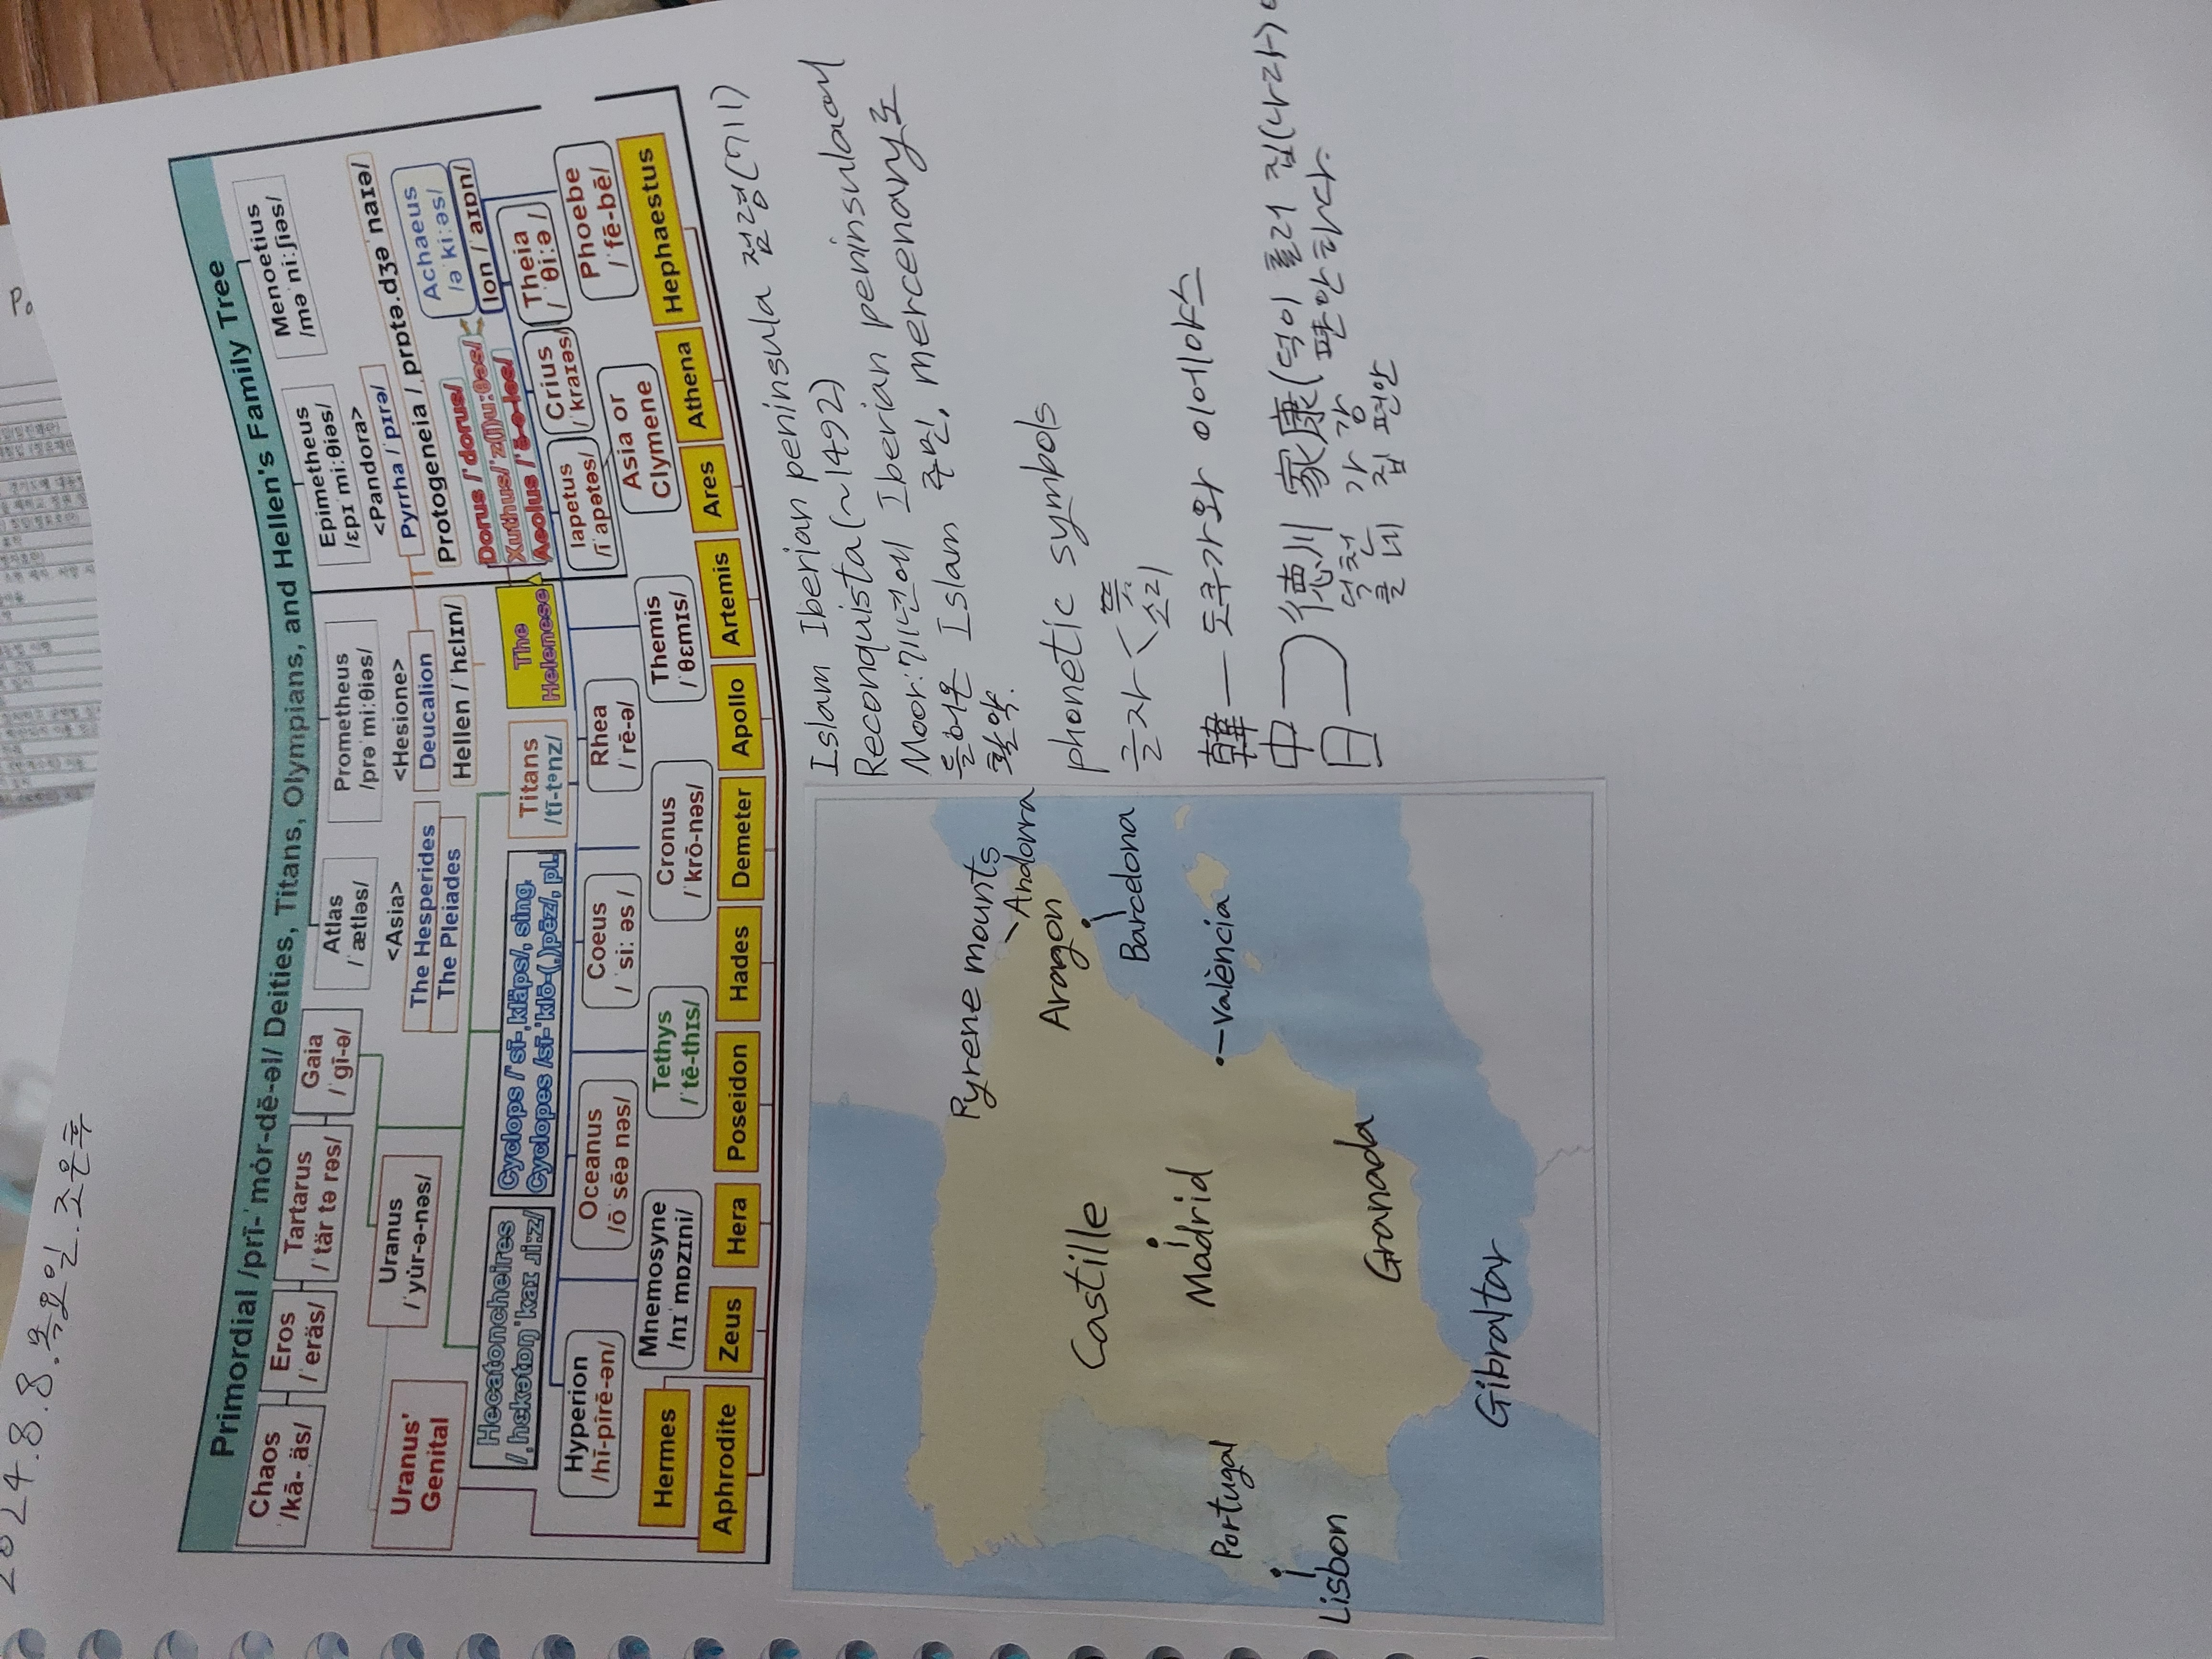 2024.8.8.목요일.조은후
Primordial /prī-ˈmȯr-dē-əl/ Deities, Titans, Olympians, and Hellen's Family Tree
Chaos
/kā-ˌäs/
Eros
/ˈeräs/
Tartarus
/ˈtär tə rəs/
Gaia
/ˈgī-ə/
Atlas
/ˈætləs/
Prometheus
/prəˈmiːθiəs/
Epimetheus
/ɛpɪˈmiːθiəs/
Menoetius
/məˈniːʃiəs/
<Asia>
<Hesione>
<Pandora>
Uranus'
Genital
Uranus
/ˈyu̇r-ə-nəs/
The Hesperides
The Pleiades
Deucalion
Pyrrha /ˈpɪrə/
Hellen /ˈhɛlɪn/
Protogeneia /ˌprɒtə.dʒəˈnaɪə/
Achaeus
/əˈkiːəs/
Ion /ˈaɪɒn/
Dorus /ˈdorus/
Xuthus/ˈz(j)uːθəs/
Aeolus /ˈē-ə-ləs/
Hecatoncheires
/ˌhɛkətɒŋˈkaɪˌɹiːz/
Cyclops /ˈsī-ˌkläps/, sing.
Cyclopes /sī-ˈklō-(ˌ)pēz/, pl.
Titans
/tī-tᵊnz/
The
Helenese
Hyperion
/hī-pîrē-ən/
Oceanus
/ō ˈsēə nəs/
Coeus
/ˈsiː əs /
Rhea
/ˈrē-ə/
Iapetus
/īˈapətəs/
Crius
/ˈkraɪəs/
Theia
/ˈθiːə /
Mnemosyne
/nɪˈmɒzɪni/
Tethys
/ˈtē-thɪs/
Cronus
/ˈkrō-nəs/
Themis
/ˈθɛmɪs/
Asia or
Clymene
Phoebe
/ˈfē-bē/
Hermes
Aphrodite
Zeus
Hera
Poseidon
Hades
Demeter
Apollo
Artemis
Ares
Athena
Hephaestus
Pyrene mounts
Andorra
Aragon
Barcelona
València
Castille
Madrid
Granada
Gibraltar
Portugal
Lisbon
Islam Iberian peninsula 점령(711)
Reconquista(~1492)
Moor:711년에 Iberian peninsula에
들어온 Islam 주민, mercenary로
활약.
phonetic symbols
글자 < 뜻
소리
韓 — 도쿠가와 이에야스
中
日
德川 家康(덕이 흘러 집(나라)
덕천 가강 편안하다.
클 네 집 편안